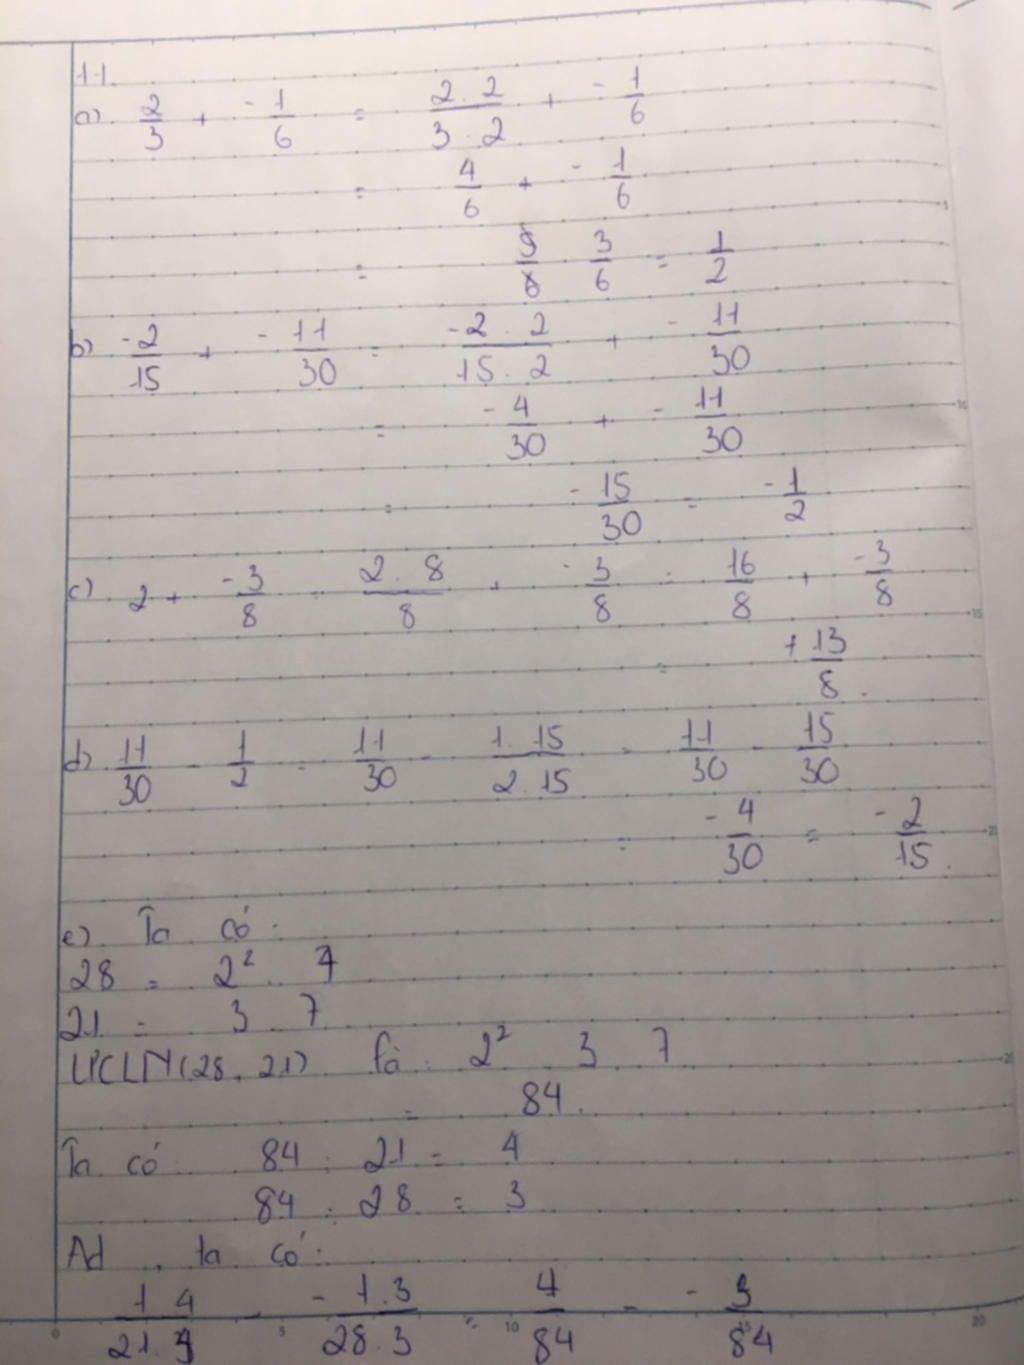 11.
a) 2/3 + -1/6 = 2.2/3.2 + -1/6
= 4/6 + -1/6
= 3/6 = 1/2
b) -2/15 + -11/30 = -2.2/15.2 + -11/30
= -4/30 + -11/30
= -15/30 = -1/2
c) 2 + -3/8 = 2.8/8 + -3/8 = 16/8 + -3/8
= +13/8.
d) 11/30 - 1/2 = 11/30 - 1.15/2.15 = 11/30 - 15/30
= -4/30 = -2/15.
e) Ta có:
28 = 2² . 7
21 = 3 . 7
ƯCLN(28, 21) là: 2² . 3 . 7
= 84.
Ta có: 84 : 21 = 4
84 : 28 = 3
Ad, ta có:
1.4/21.4 - -1.3/28.3 = 4/84 - -3/84